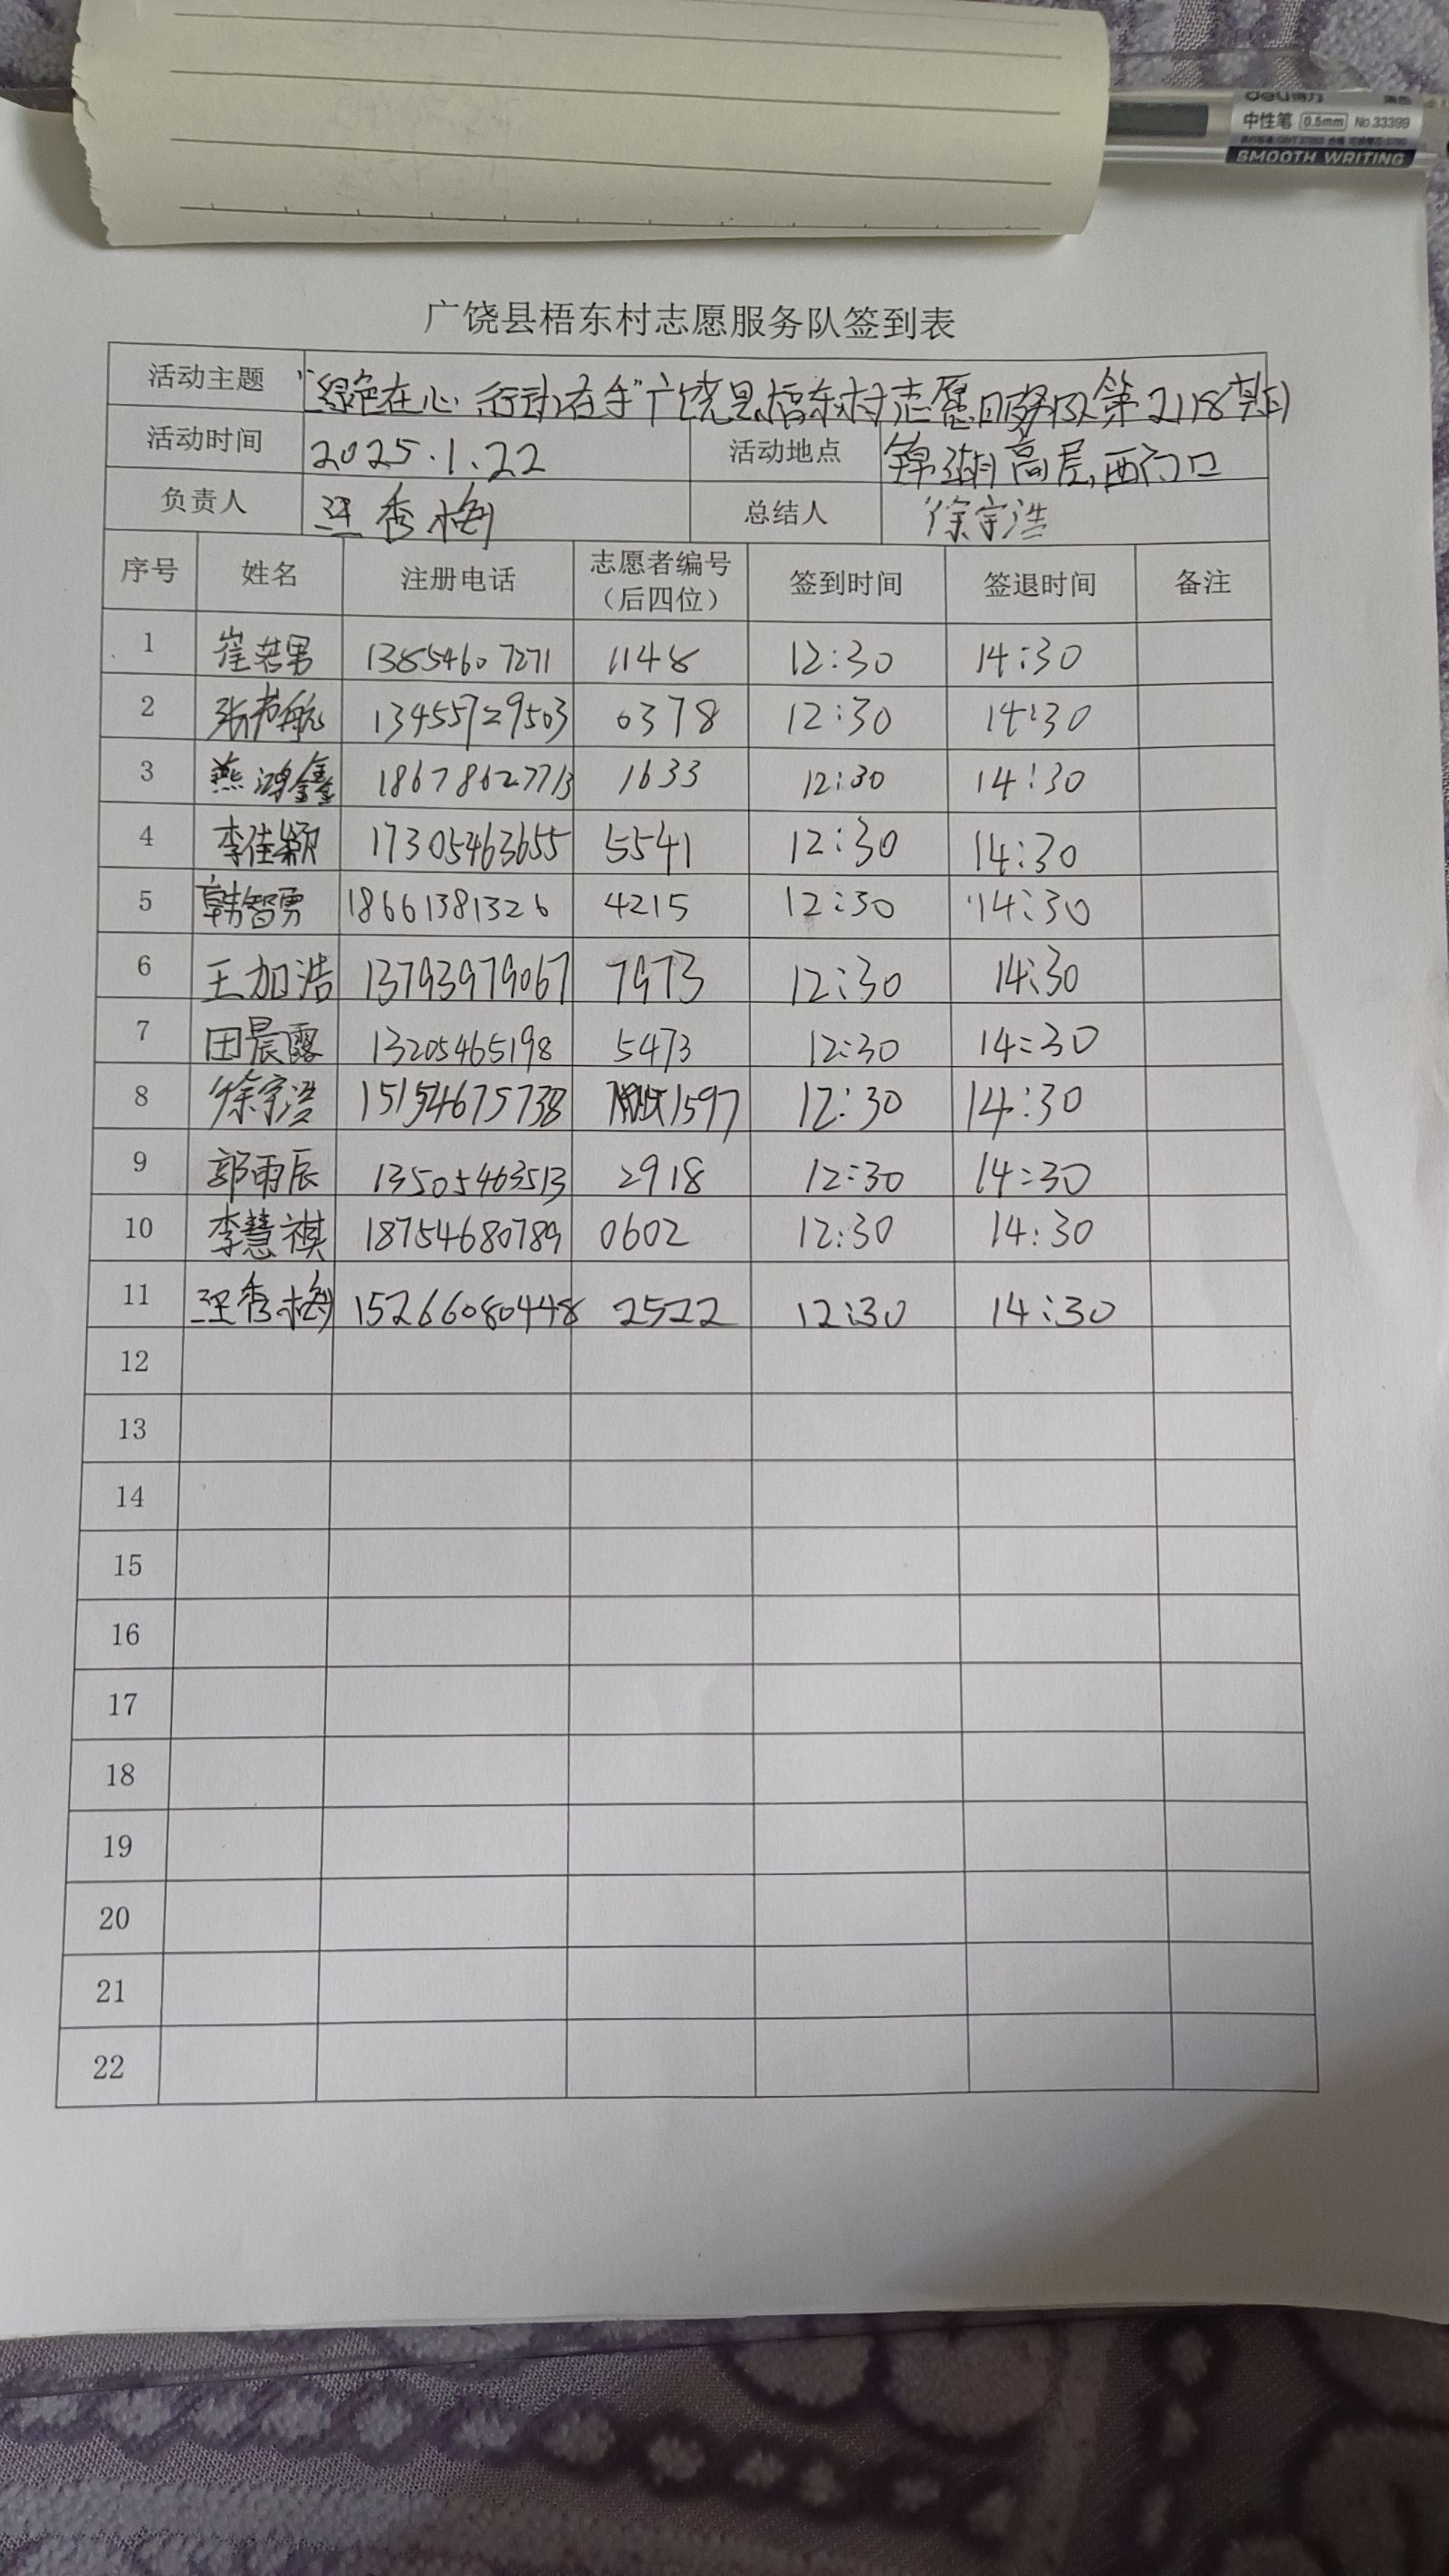 deli得力
中性笔 0.5mm No.33399
SMOOTH WRITING
广饶县梧东村志愿服务队签到表
活动主题 "绿色在心 行动在手"广饶县梧东村志愿服务队第2118期
活动时间 2025.1.22 活动地点 锦湖高层,西门口
负责人 王秀梅 总结人 徐宗浩
序号 姓名 注册电话 志愿者编号（后四位） 签到时间 签退时间 备注
1 崔若男 13854607271 1148 12:30 14:30
2 张书航 13455729503 0378 12:30 14:30
3 燕鸿鑫 18678627713 1633 12:30 14:30
4 李佳颖 17305463655 5541 12:30 14:30
5 韩智勇 18661381326 4215 12:30 14:30
6 王加浩 13793979067 7973 12:30 14:30
7 田晨露 13205465198 5473 12:30 14:30
8 徐宗浩 15154675738 1597 12:30 14:30
9 郭雨辰 13505463513 2918 12:30 14:30
10 李慧祺 18754680789 0602 12:30 14:30
11 王秀梅 15266080448 2522 12:30 14:30
12
13
14
15
16
17
18
19
20
21
22